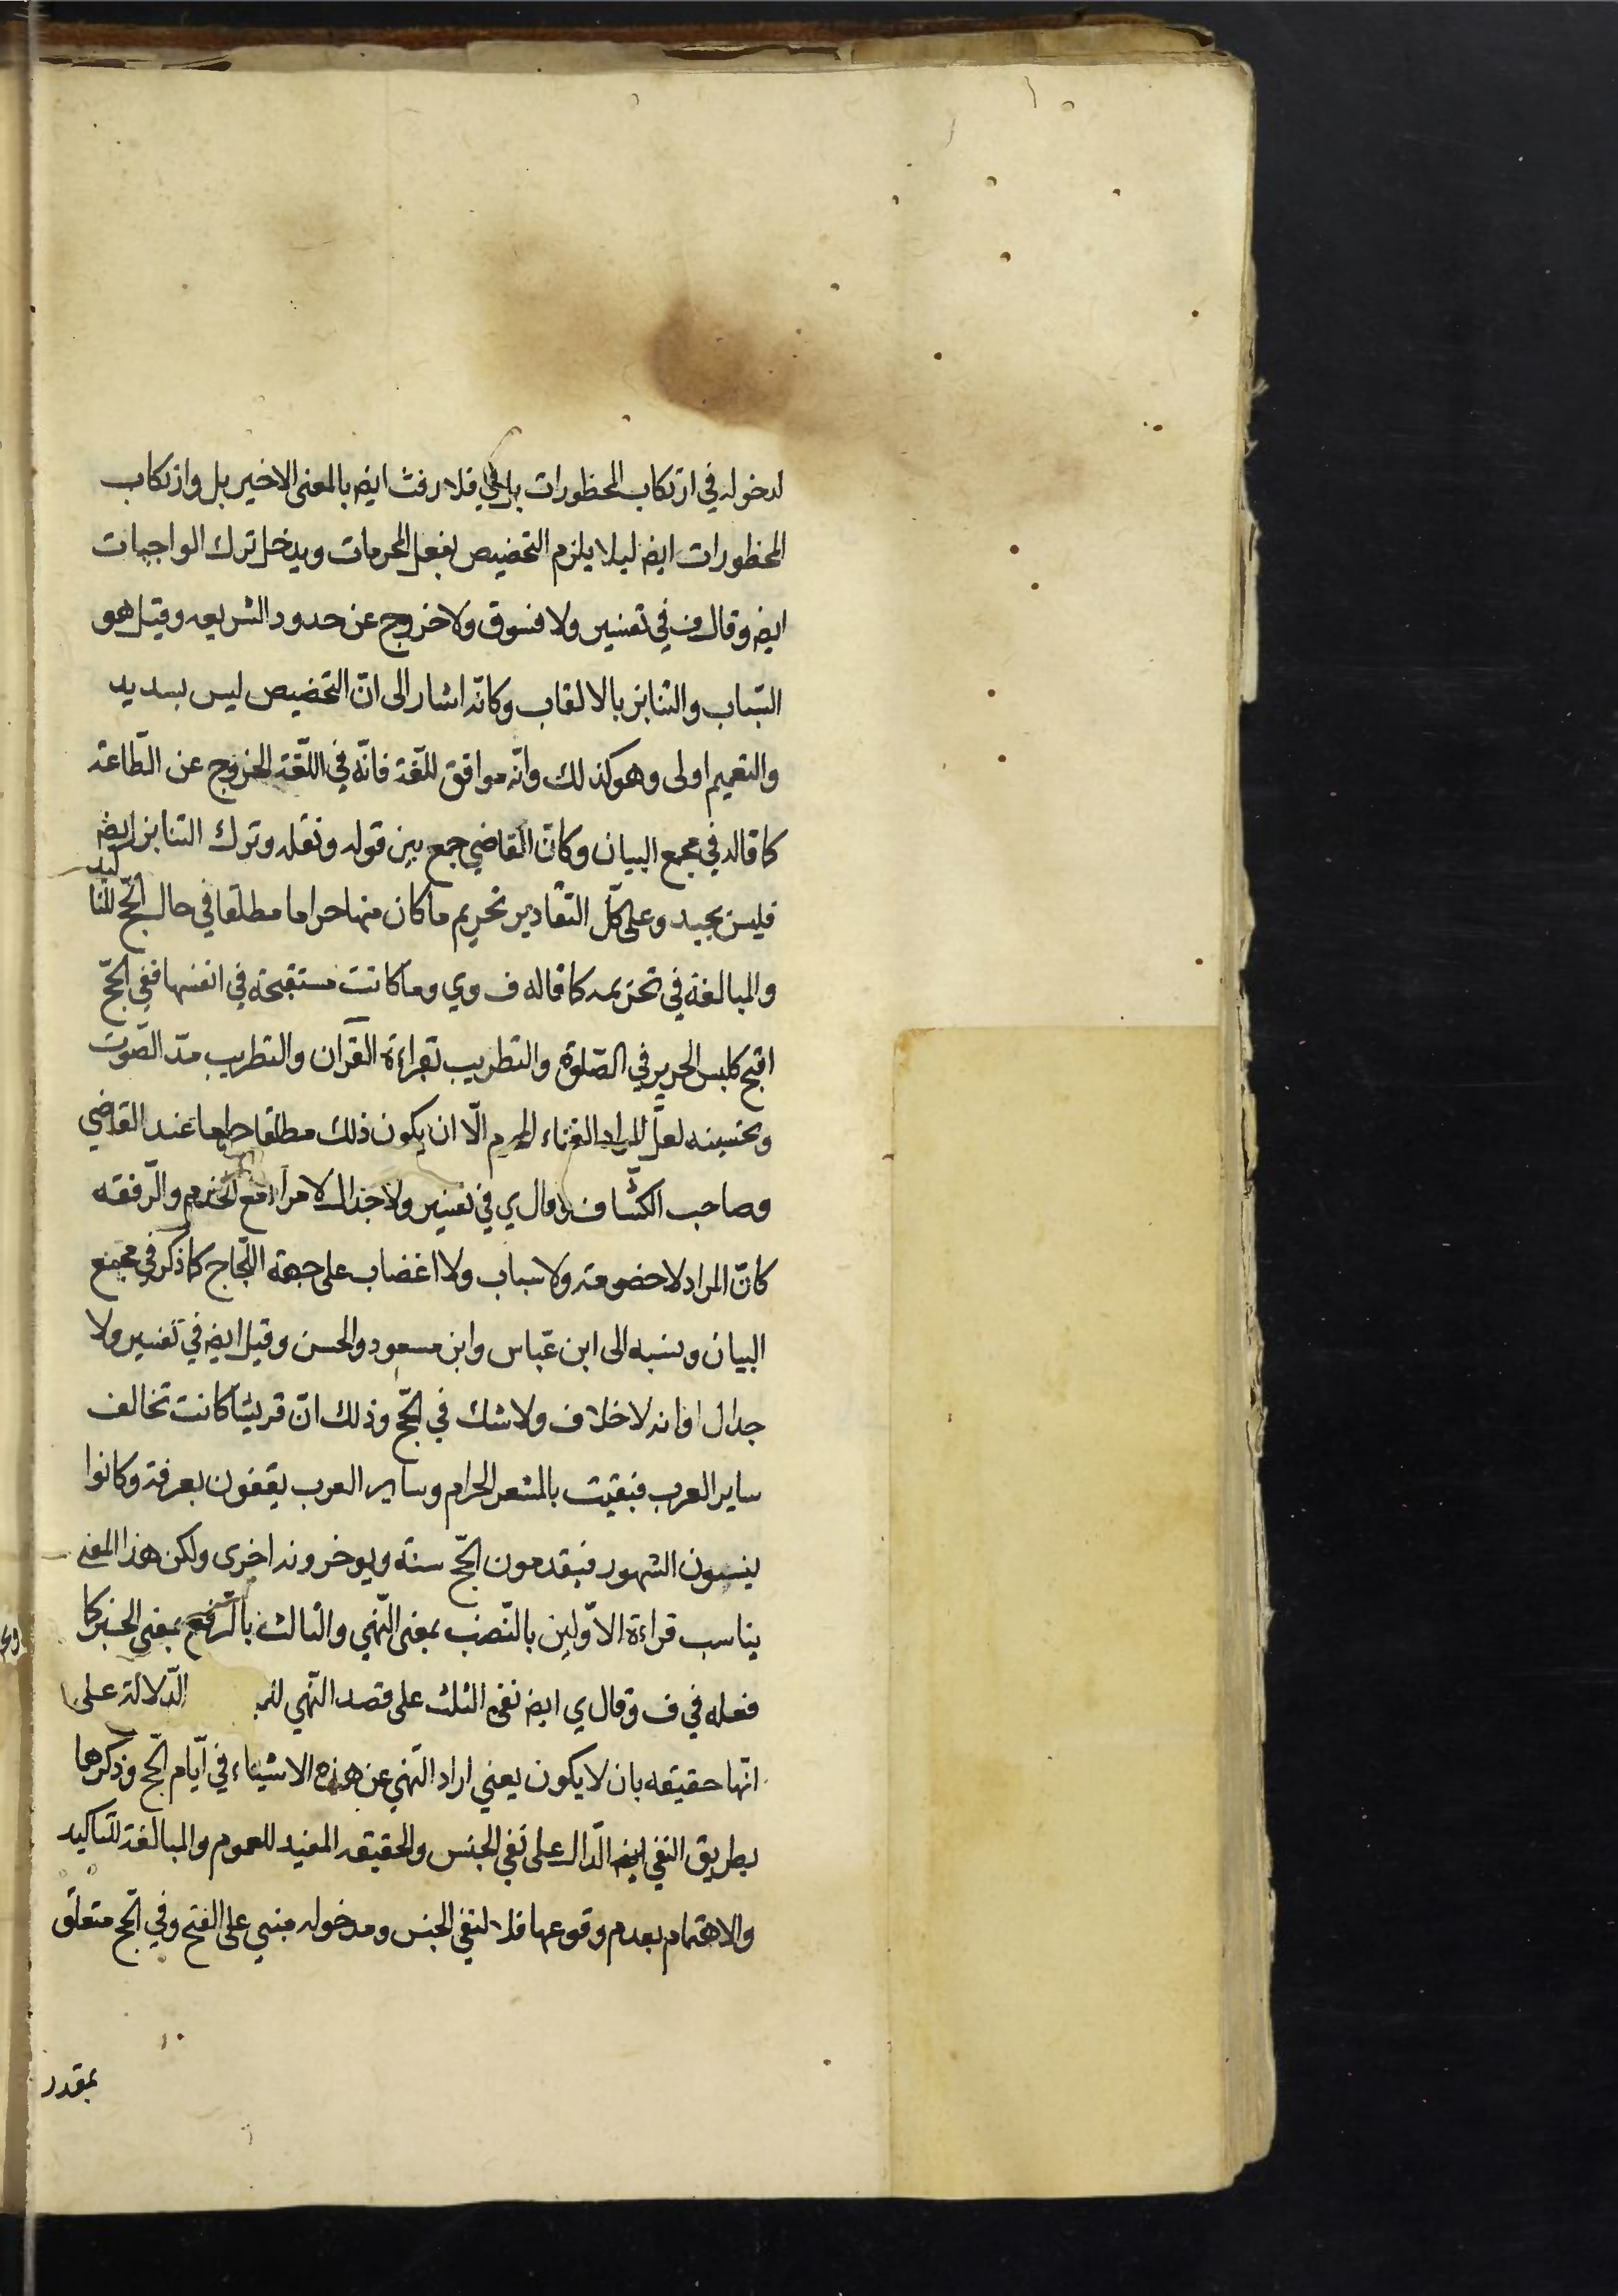 لدخوله في ارتكاب المحظورات بل في فلا رفث ايضا بالمعنى الاخير بل وارتكاب
المحظورات ايضا ليلا يلزم التخصيص بفعل المحرمات ويدخل ترك الواجبات
ايضا وقال ف في تفسير ولا فسوق ولا خروج عن حدود الشريعه وقيل هو
السّباب والتنابز بالالقاب وكانّه اشار الى انّ التخصيص ليس بسديد
والتعميم اولى وهو كذلك وانّه موافق للّغة فانّه في اللّغة الخروج عن الطّاعة
كما قاله في مجمع البيان وكانّ القاضي جمع بين قوله ونقله وترك التنابز ايضا
فليس بجيد وعلى كلّ التقادير تحريم ما كان منها حراما مطلقا في حال الحجّ للتا
كيد
والمبالغة في تحريمه كما قاله ف وي وما كانت مستقبحة في انفسها ففي الحجّ
اقبح كلبس الحرير في الصّلوة والتطريب بقراءة القرآن والتطريب مدّ الصّوت
وتحسينه لعلّ المراد الغناء المحرم الّا ان يكون ذلك مطلقا حراما عند القاضي
وصاحب الكشّاف وقال ي في تفسير ولا جدال لا مراء مع الخدم والرّفقه
كانّ المراد لا خصومة ولا سباب ولا اغضاب على جهة اللّجاج كما ذكر في مجمع
البيان ونسبه الى ابن عبّاس وابن مسعود والحسن وقيل ايضا في تفسير ولا
جدال اذا نه لا خلاف ولا شك في الحجّ وذلك انّ قريشا كانت تخالف
ساير العرب فيقيت بالمشعر الحرام وساير العرب يقفون بعرفة وكانوا
ينسون الشهور فيقدمون الحجّ سنة ويوخرونه اخرى ولكن هذا المعنى
يناسب قراءة الاوّلين بالنّصب بمعنى النّهي والثالث بالرّفع بمعنى الخبر كما
فعله في ف وقال ي ايضا نفى الثلث على قصد النّهي للم الدّلالة على
انّها حقيقه بان لا يكون يعني اراد النّهي عن هذه الاشياء في ايّام الحجّ وذكرها
بطريق النفي ايضا الدّال على نفي الجنس والحقيقه المفيد للعموم والمبالغة للتاكيد
والاهتمام بعدم وقوعها فلا لنفي الجنس ومدخوله مبني على الفتح وفي الحج متعلّق
بمقدر